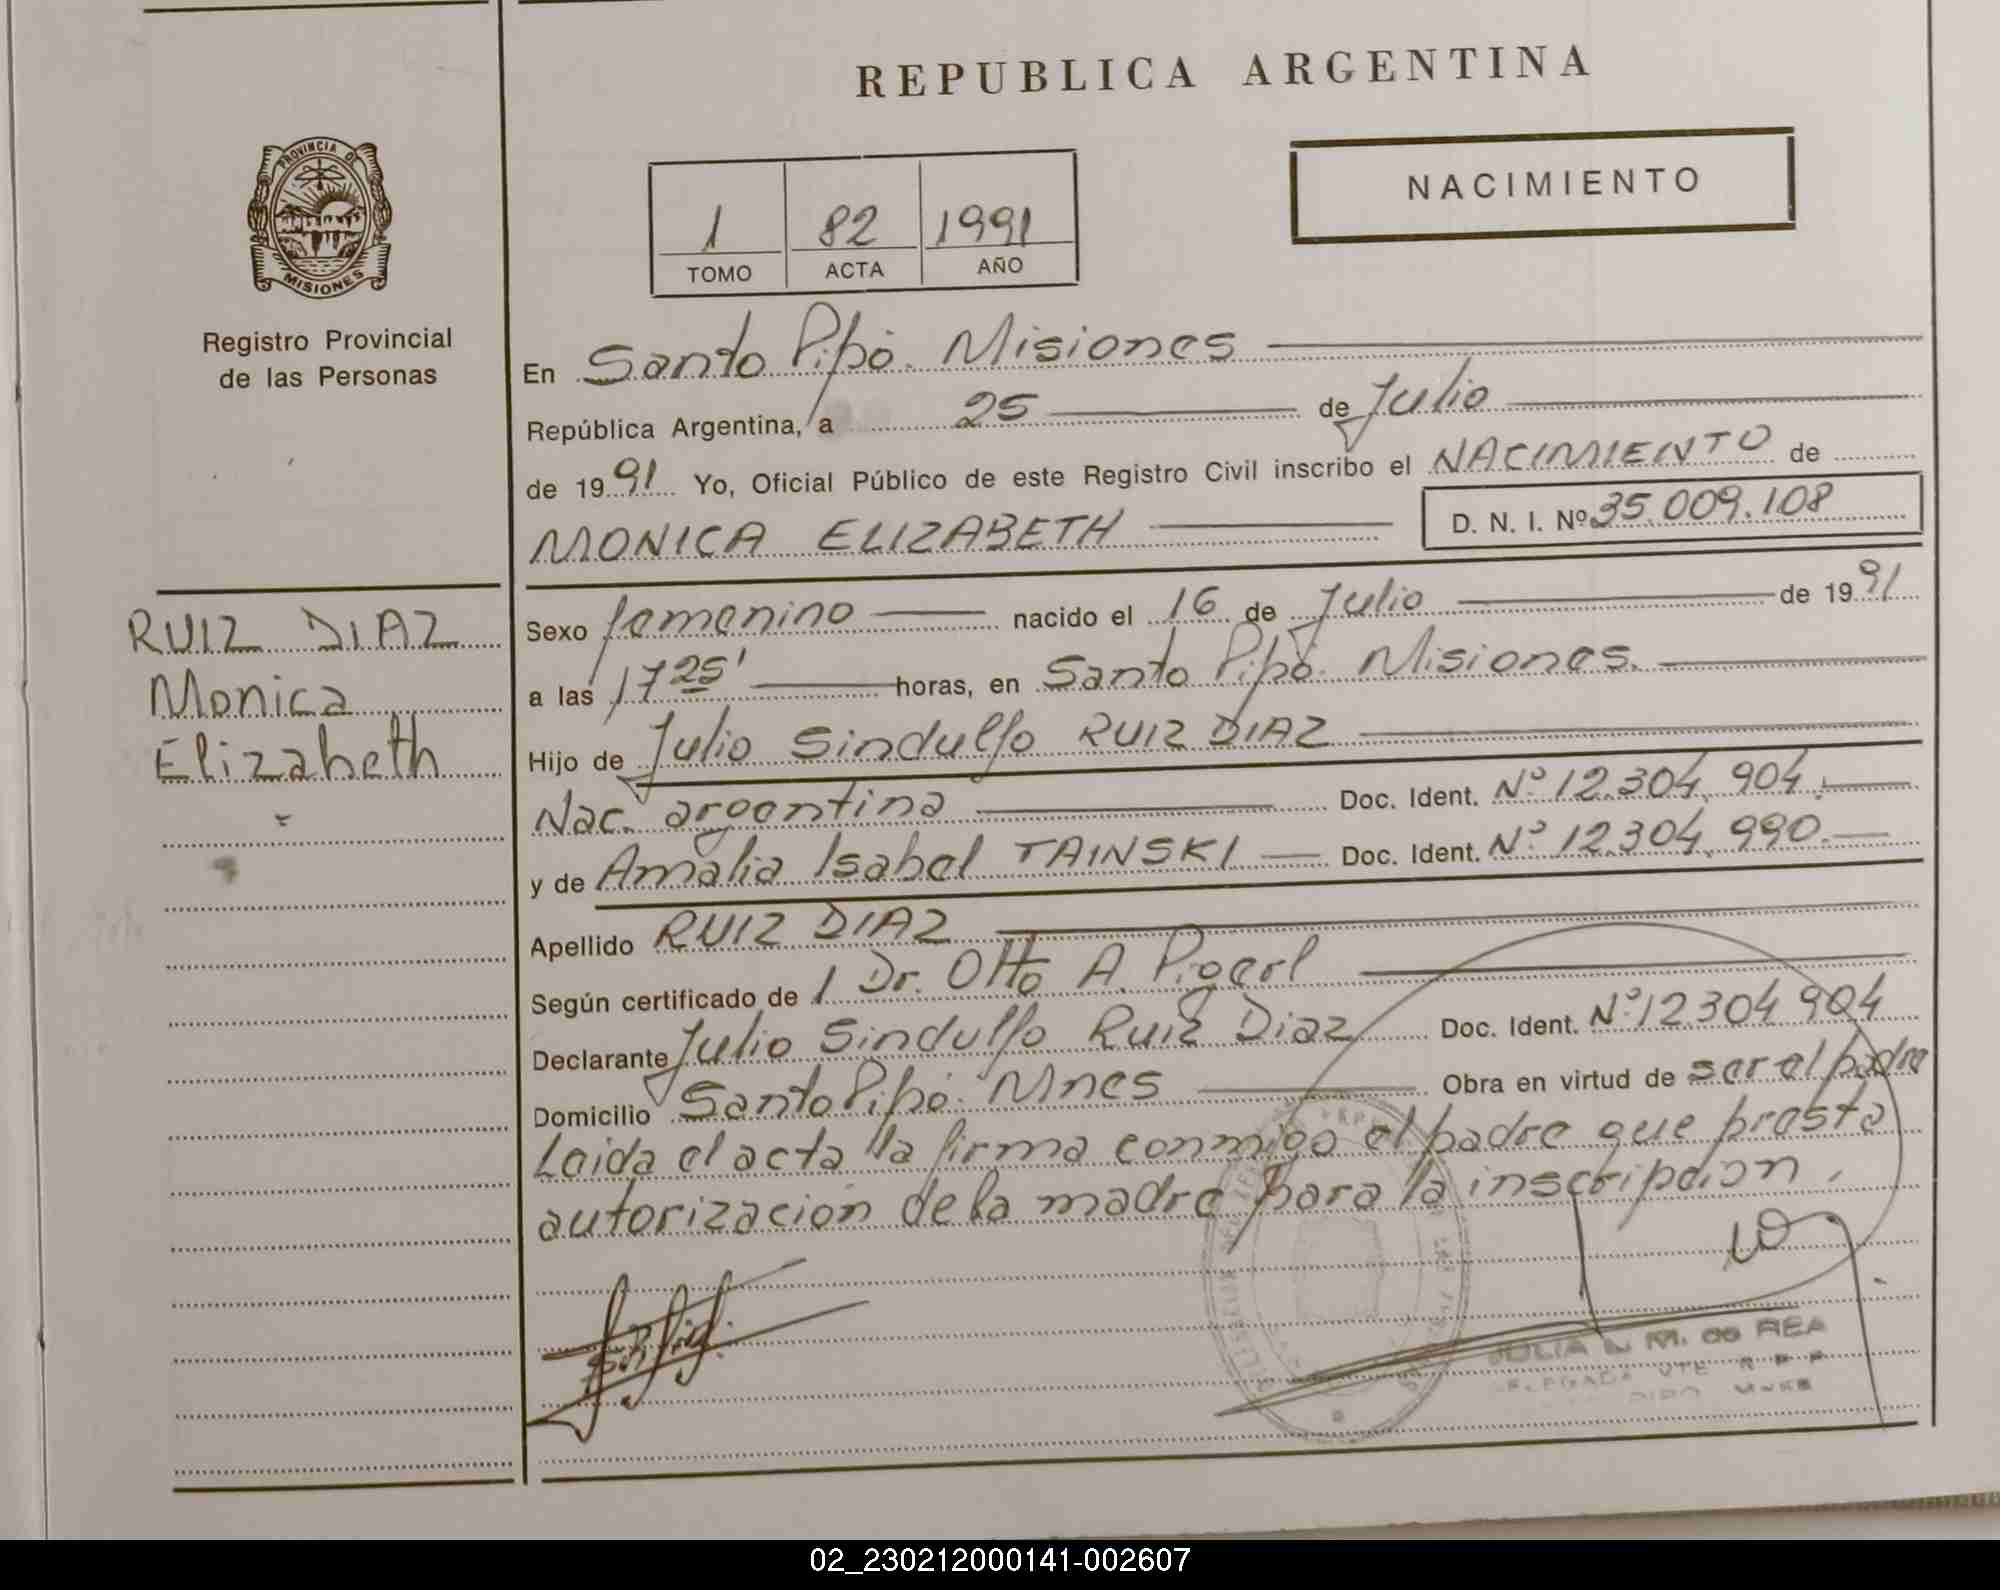 REPUBLICA ARGENTINA
NACIMIENTO
1 82 1991
TOMO ACTA AÑO
PROVINCIA DE
MISIONES
Registro Provincial
de las Personas
RUIZ DIAZ
Monica
Elizabeth
En Santo Pipó. Misiones
República Argentina, a 25 de Julio
de 1991 Yo, Oficial Público de este Registro Civil inscribo el NACIMIENTO de
MONICA ELIZABETH D. N. I. Nº 35.009.108
Sexo femenino nacido el 16 de Julio de 1991
a las 17 25' horas, en Santo Pipó. Misiones.
Hijo de Julio Sindulfo RUIZ DIAZ
Nac. argentina Doc. Ident. Nº 12.304.904.
y de Amalia Isabel TAINSKI Doc. Ident. Nº 12.304.990.
Apellido RUIZ DIAZ
Según certificado de 1 Dr. Otto A. Pigerl
Declarante Julio Sindulfo Ruiz Diaz Doc. Ident. Nº 12.304.904
Domicilio Santo Pipó. Mnes Obra en virtud de ser el padre
Leida el acta la firma conmigo el padre que presta
autorización de la madre para la inscripción.
M. de REA
02_230212000141-002607